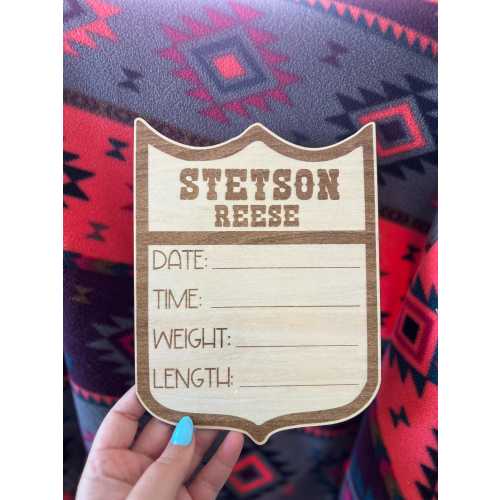 STETSON
REESE
DATE:
TIME:
WEIGHT:
LENGTH: